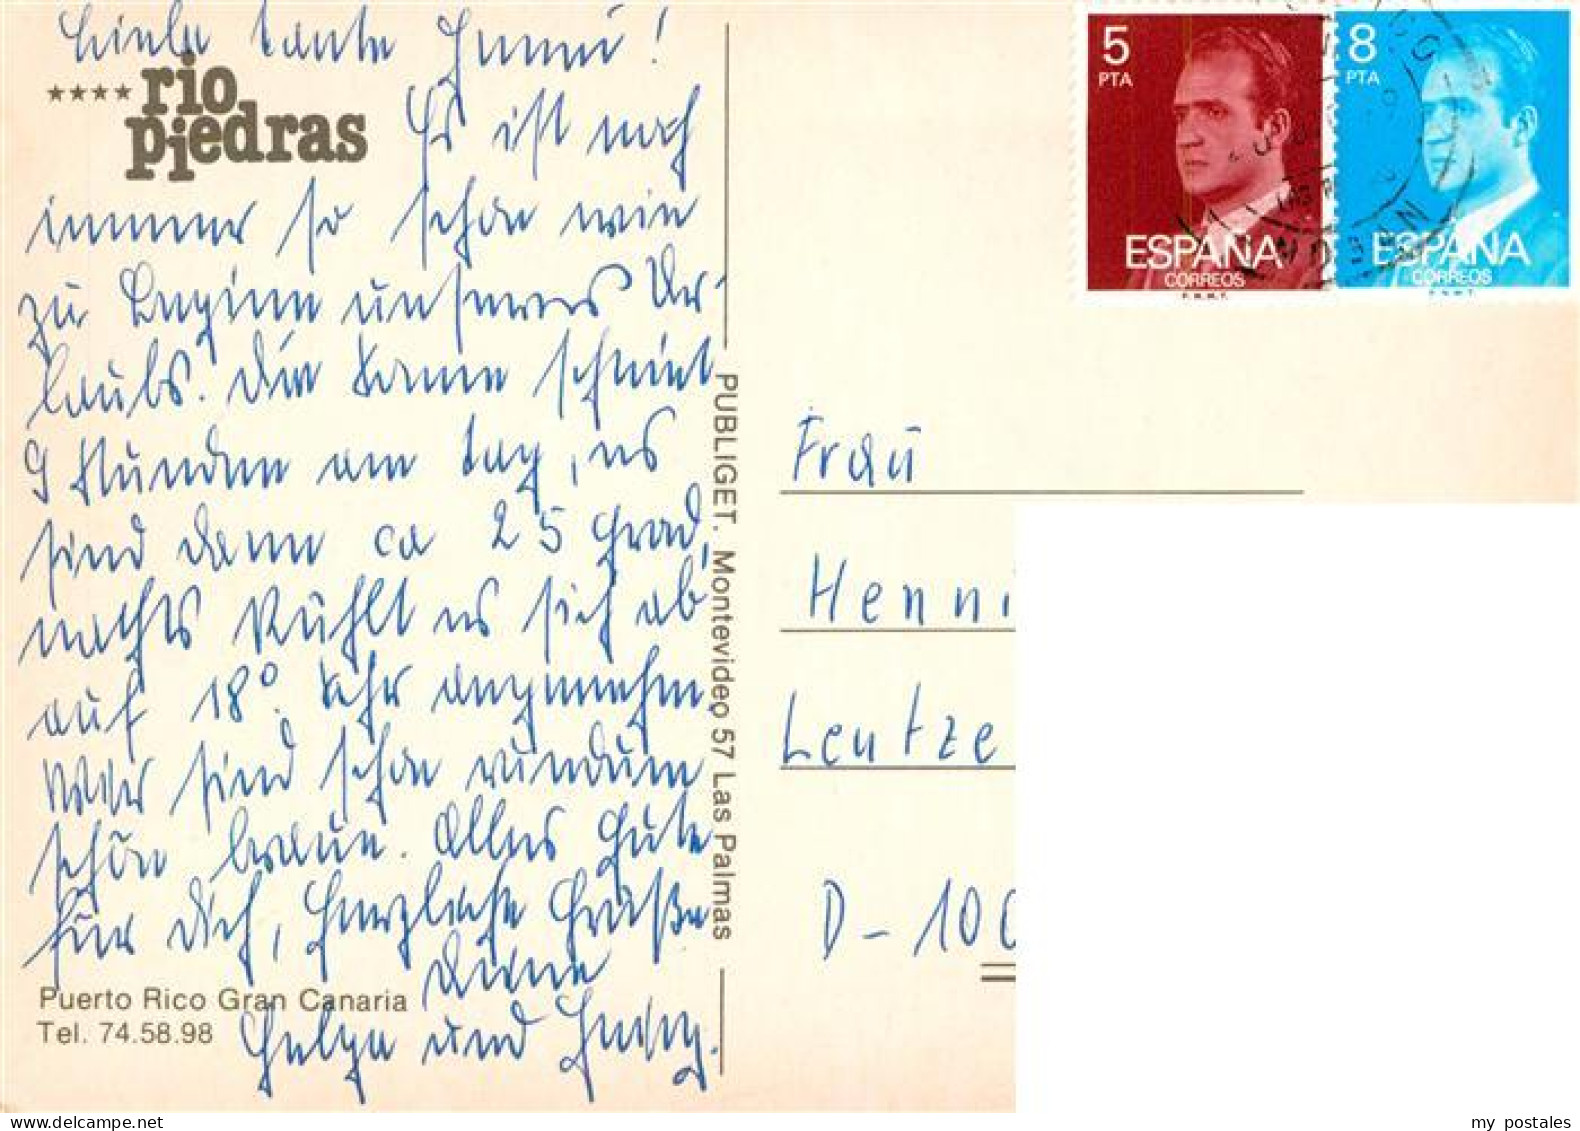 Liebe Tante Henni!
**** rio piedras
Es ist noch
immer so schön wie
zu Beginn unseres Ur-
laubs. Die Sonne scheint
9 Stunden am Tag, es
sind dann ca 25 Grad,
nachts kühlt es sich ab
auf 18°. Sehr angenehm.
Wir sind schon rundum
schön braun. Alles Gute
für Dich, herzliche Grüße
Deine
Helga und
Puerto Rico Gran Canaria
Tel. 74.58.98
PUBLIGET. Montevideo, 57 Las Palmas
5 PTA
ESPAÑA
CORREOS
F.N.M.T.
8 PTA
ESPAÑA
CORREOS
F.N.M.T.
Frau
Henni
Leutze
D-100
my postales